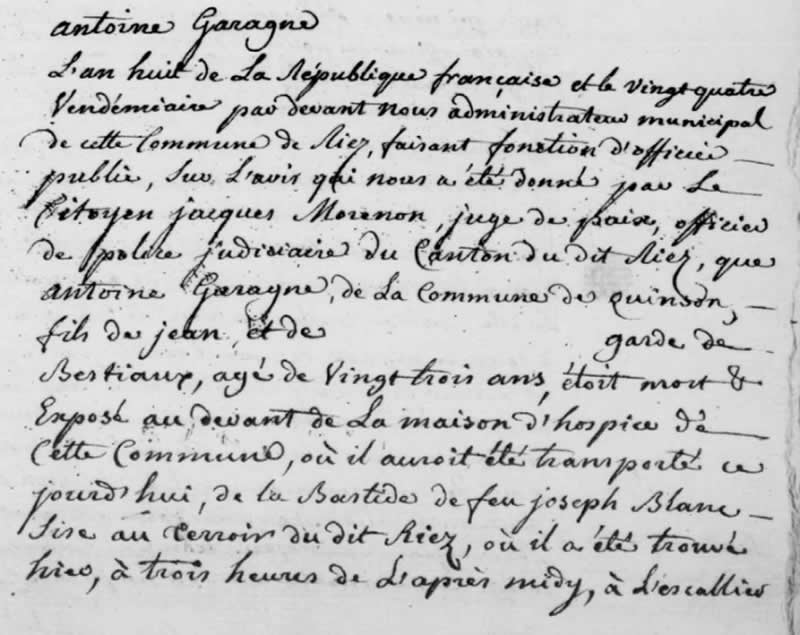 antoine Garagne
L'an huit de La République française et le vingt quatre
Vendémiaire par devant nous administrateur municipal
de cette Commune de Riez, faisant fonction d'officier
public, Sur L'avis qui nous a été donné par Le
Citoyen jacques Morenon, juge de paix, officier
de police judiciaire du Canton du dit Riez, que
antoine Garagne, de La Commune de Quinson,
fils de jean, et de garde de
Bestiaux, agé de Vingt trois ans, étoit mort &
Exposé au devant de La maison d'hospice de
Cette Commune, où il auroit été transporté ce
jourd'hui, de la Bastide de feu joseph Blanc
Sise au terroir du dit Riez, où il a été trouvé
hier, à trois heures de L'après midy, à L'escallier